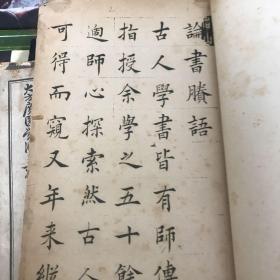 論書賸語
古人學書皆有師傳
指授余學之五十餘
師心探索然古人
可得而窺又年来縱